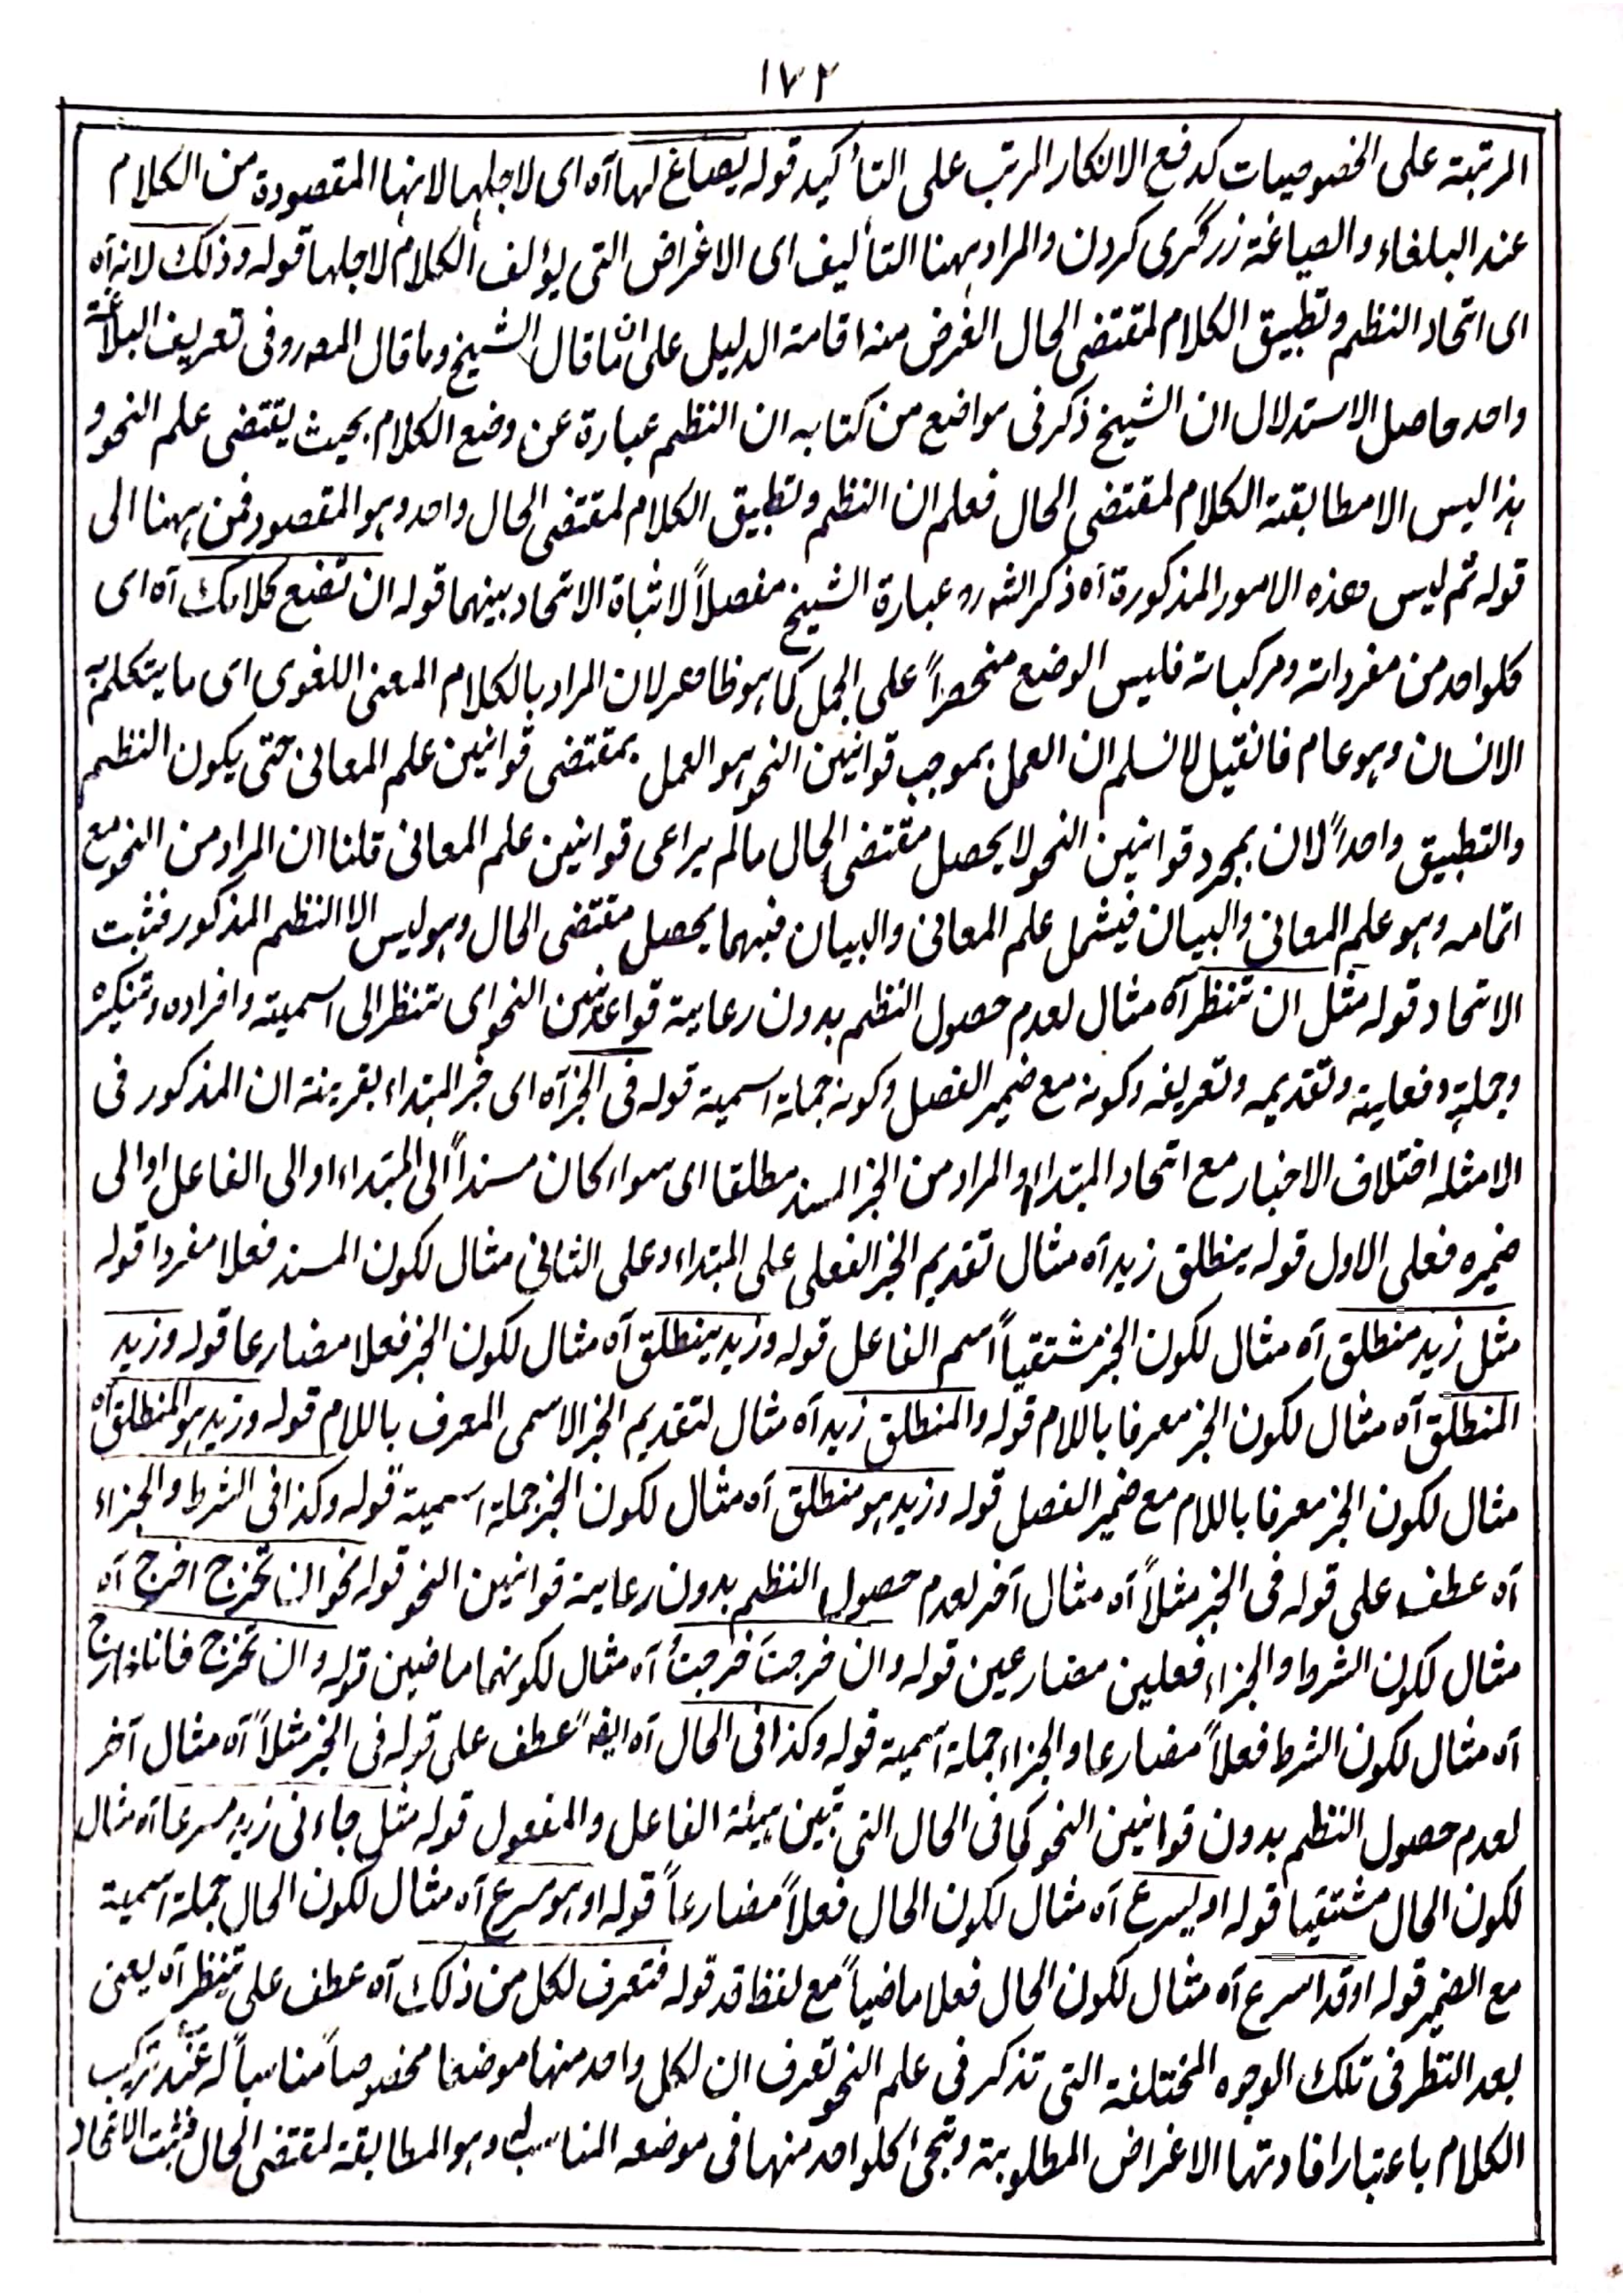 ١٧٢
المرتبة على الخصوصيات كدفع الانكار المرتب على التأكيد قوله يصاغ لها آه اى لاجلها لانها المقصودة من الكلام
عند البلغاء والصياغة زرگرى كردن والمراد ههنا التأليف اى الاغراض التى يؤلف الكلام لاجلها قوله وذلك لانه آه
اى اتحاد النظم وتطبيق الكلام لمقتضى الحال الغرض منه اقامة الدليل على ان ما قال الشيخ وما قال المصر فى تعريف البلاغة
واحد حاصل الاستدلال ان الشيخ ذكر فى مواضع من كتابه ان النظم عبارة عن وضع الكلام بحيث يقتضى علم النحو و
هذا ليس الا مطابقة الكلام لمقتضى الحال فعلم ان النظم وتطبيق الكلام لمقتضى الحال واحد وهو المقصود فمن ههنا الى
قوله ثم ليس هذه الامور المذكورة آه ذكر الشرو عبارة الشيخ مفصلاً لاثباة الاتحاد بينهما قوله ان تضع كلامك آه اى
كلواحد من مفرداته ومركباته فليس الوضع منحصراً على الجمل كما هو ظاهر لان المراد بالكلام المعنى اللغوى اى ما يتكلم به
الانسان وهو عام فانقيل لا نسلم ان العمل بموجب قوانين النحو هو العمل بمقتضى قوانين علم المعانى حتى يكون النظم
والتطبيق واحداً لان بمجرد قوانين النحو لا يحصل مقتضى الحال مالم يراعى قوانين علم المعانى قلنا ان المراد من النحو مع
اتمامه وهو علم المعانى والبيان فيشمل علم المعانى والبيان فبهما يحصل مقتضى الحال وهو ليس الا النظم المذكور فثبت
الاتحاد قوله مثل ان تنظر آه مثال لعدم حصول النظم بدون رعاية قواعد من النحو اى تنظر الى اسميته وافراده وتنكيره
وجملية وفعلية وتقديمه وتعريفه وكونه مع ضمير الفصل وكونه جملة اسمية قوله فى الخبر آه اى خبر المبتداء بقرينة ان المذكور فى
الامثله اختلاف الاخبار مع اتحاد المبتداء او المراد من الخبر المسند مطلقا اى سواء كان مسنداً الى المبتداء او الى الفاعل او الى
ضميره فعلى الاول قوله ينطلق زيد آه مثال تقديم الخبر الفعلى على المبتداء وعلى الثانى مثال لكون المسند فعلا مفردا قوله
مثل زيد منطلق آه مثال لكون الخبر مشتقياً اسم الفاعل قوله وزيد ينطلق آه مثال لكون الخبر فعلا مضارعا قوله وزيد
المنطلق آه مثال لكون الخبر معرفا باللام قوله والمنطلق زيد آه مثال لتقديم الخبر الاسمى المعرف باللام قوله وزيد هو المنطلق آه
مثال لكون الخبر معرفا باللام مع ضمير الفصل قوله وزيد هو منطلق آه مثال لكون الخبر جملة اسمية قوله وكذا فى الشرط والجزاء
آه عطف على قوله فى الخبر مثلاً آه مثال آخر لعدم حصول النظم بدون رعاية قوانين النحو قوله نحو ان تخرج اخرج آه
مثال لكون الشرط والجزاء فعلين مضارعين قوله وان خرجتَ خرجتُ آه مثال لكونهما ماضين قوله وان تخرج فانا خارج
آه مثال لكون الشرط فعلاً مضارعا والجزاء جملة اسمية قوله وكذا فى الحال آه ايضاً عطف على قوله فى الخبر مثلاً آه مثال آخر
لعدم حصول النظم بدون قوانين النحو كما فى الحال التى تبين هيئة الفاعل والمفعول قوله مثل جاءنى زيد مسرعا آه مثال
لكون الحال مشتقيا قوله او يسرع آه مثال لكون الحال فعلاً مضارعاً قوله او هو مسرع آه مثال لكون الحال جملة اسمية
مع الضمير قوله او قد اسرع آه مثال لكون الحال فعلا ماضياً مع لفظ قد قوله فتعرف لكل من ذلك آه عطف على تنظر آه يعنى
بعد النظر فى تلك الوجوه المختلفة التى تذكر فى علم النحو تعرف ان لكل واحد منها موضعا مخصوصاً مناسباً له عند تركيب
الكلام باعتبار افادتها الاغراض المطلوبة وتجئ كلواحد منها فى موضعه المناسب له وهو المطابقة لمقتضى الحال فثبت الاتحاد